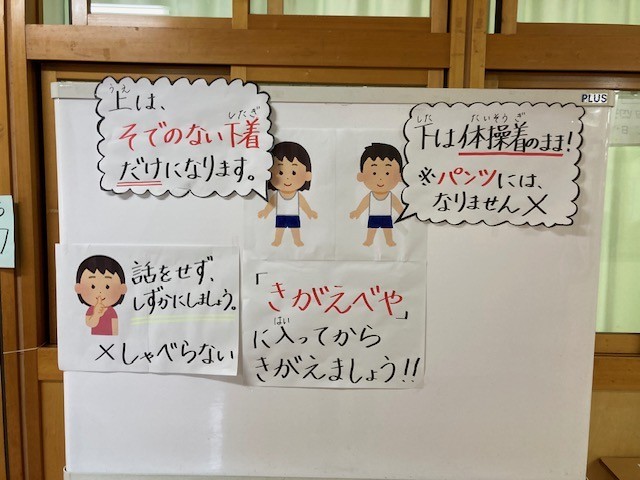 上は、
うえ
そでのない下着
したぎ
だけになります。
下は体操着のまま!
した たいそうぎ
※パンツには、
なりません×
PLUS
話をせず、
しずかにしましょう。
×しゃべらない
「きがえべや」
に入ってから
はい
きがえましょう!!